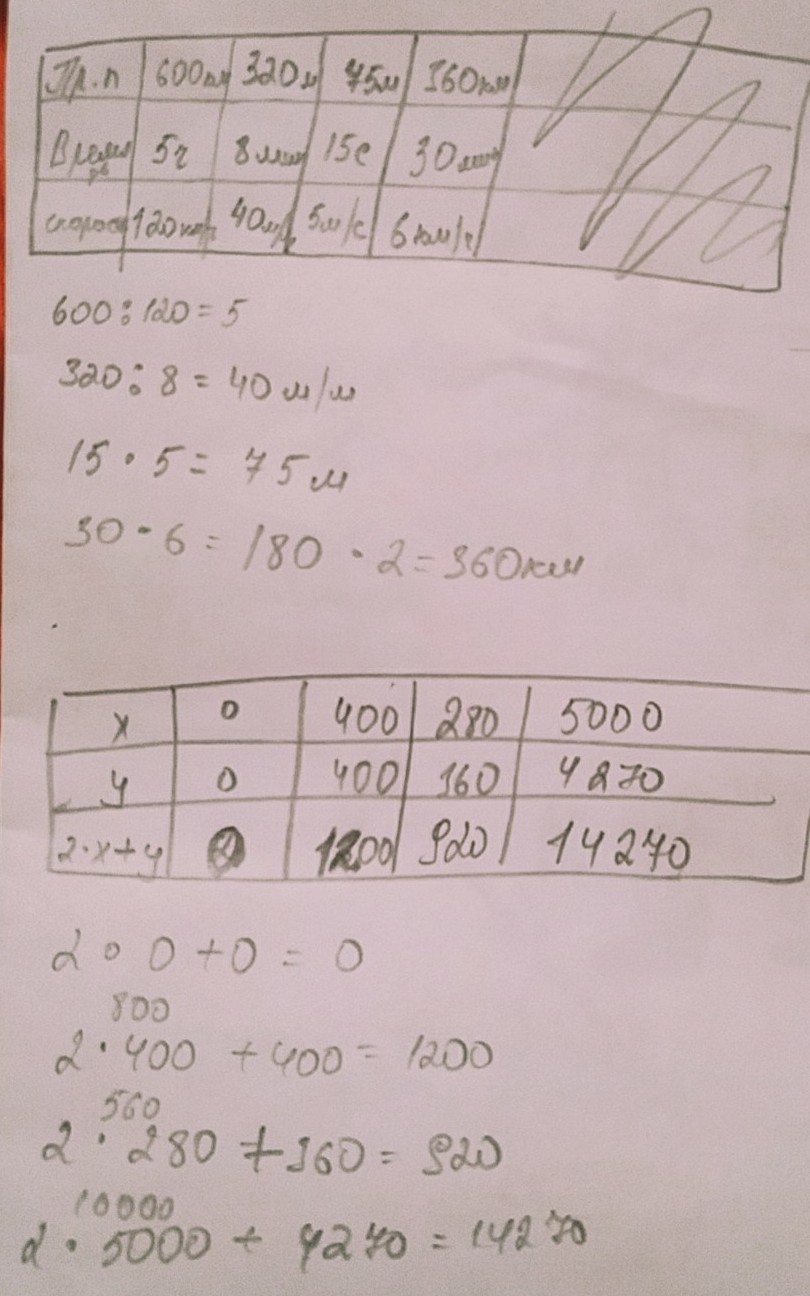 Пр.п 600км 320м 75м 360км
Время дв 5ч 8мин 15с 30мин
скорос 120км/ч 40м/м 5м/с 6км/ч
600:120=5
320:8=40м/м
15·5=75м
30·6=180·2=360км
x 0 400 280 5000
y 0 400 360 4270
2·x+y 0 1200 920 14270
2·0+0=0
800
2·400+400=1200
560
2·280+360=920
10000
2·5000+4270=14270